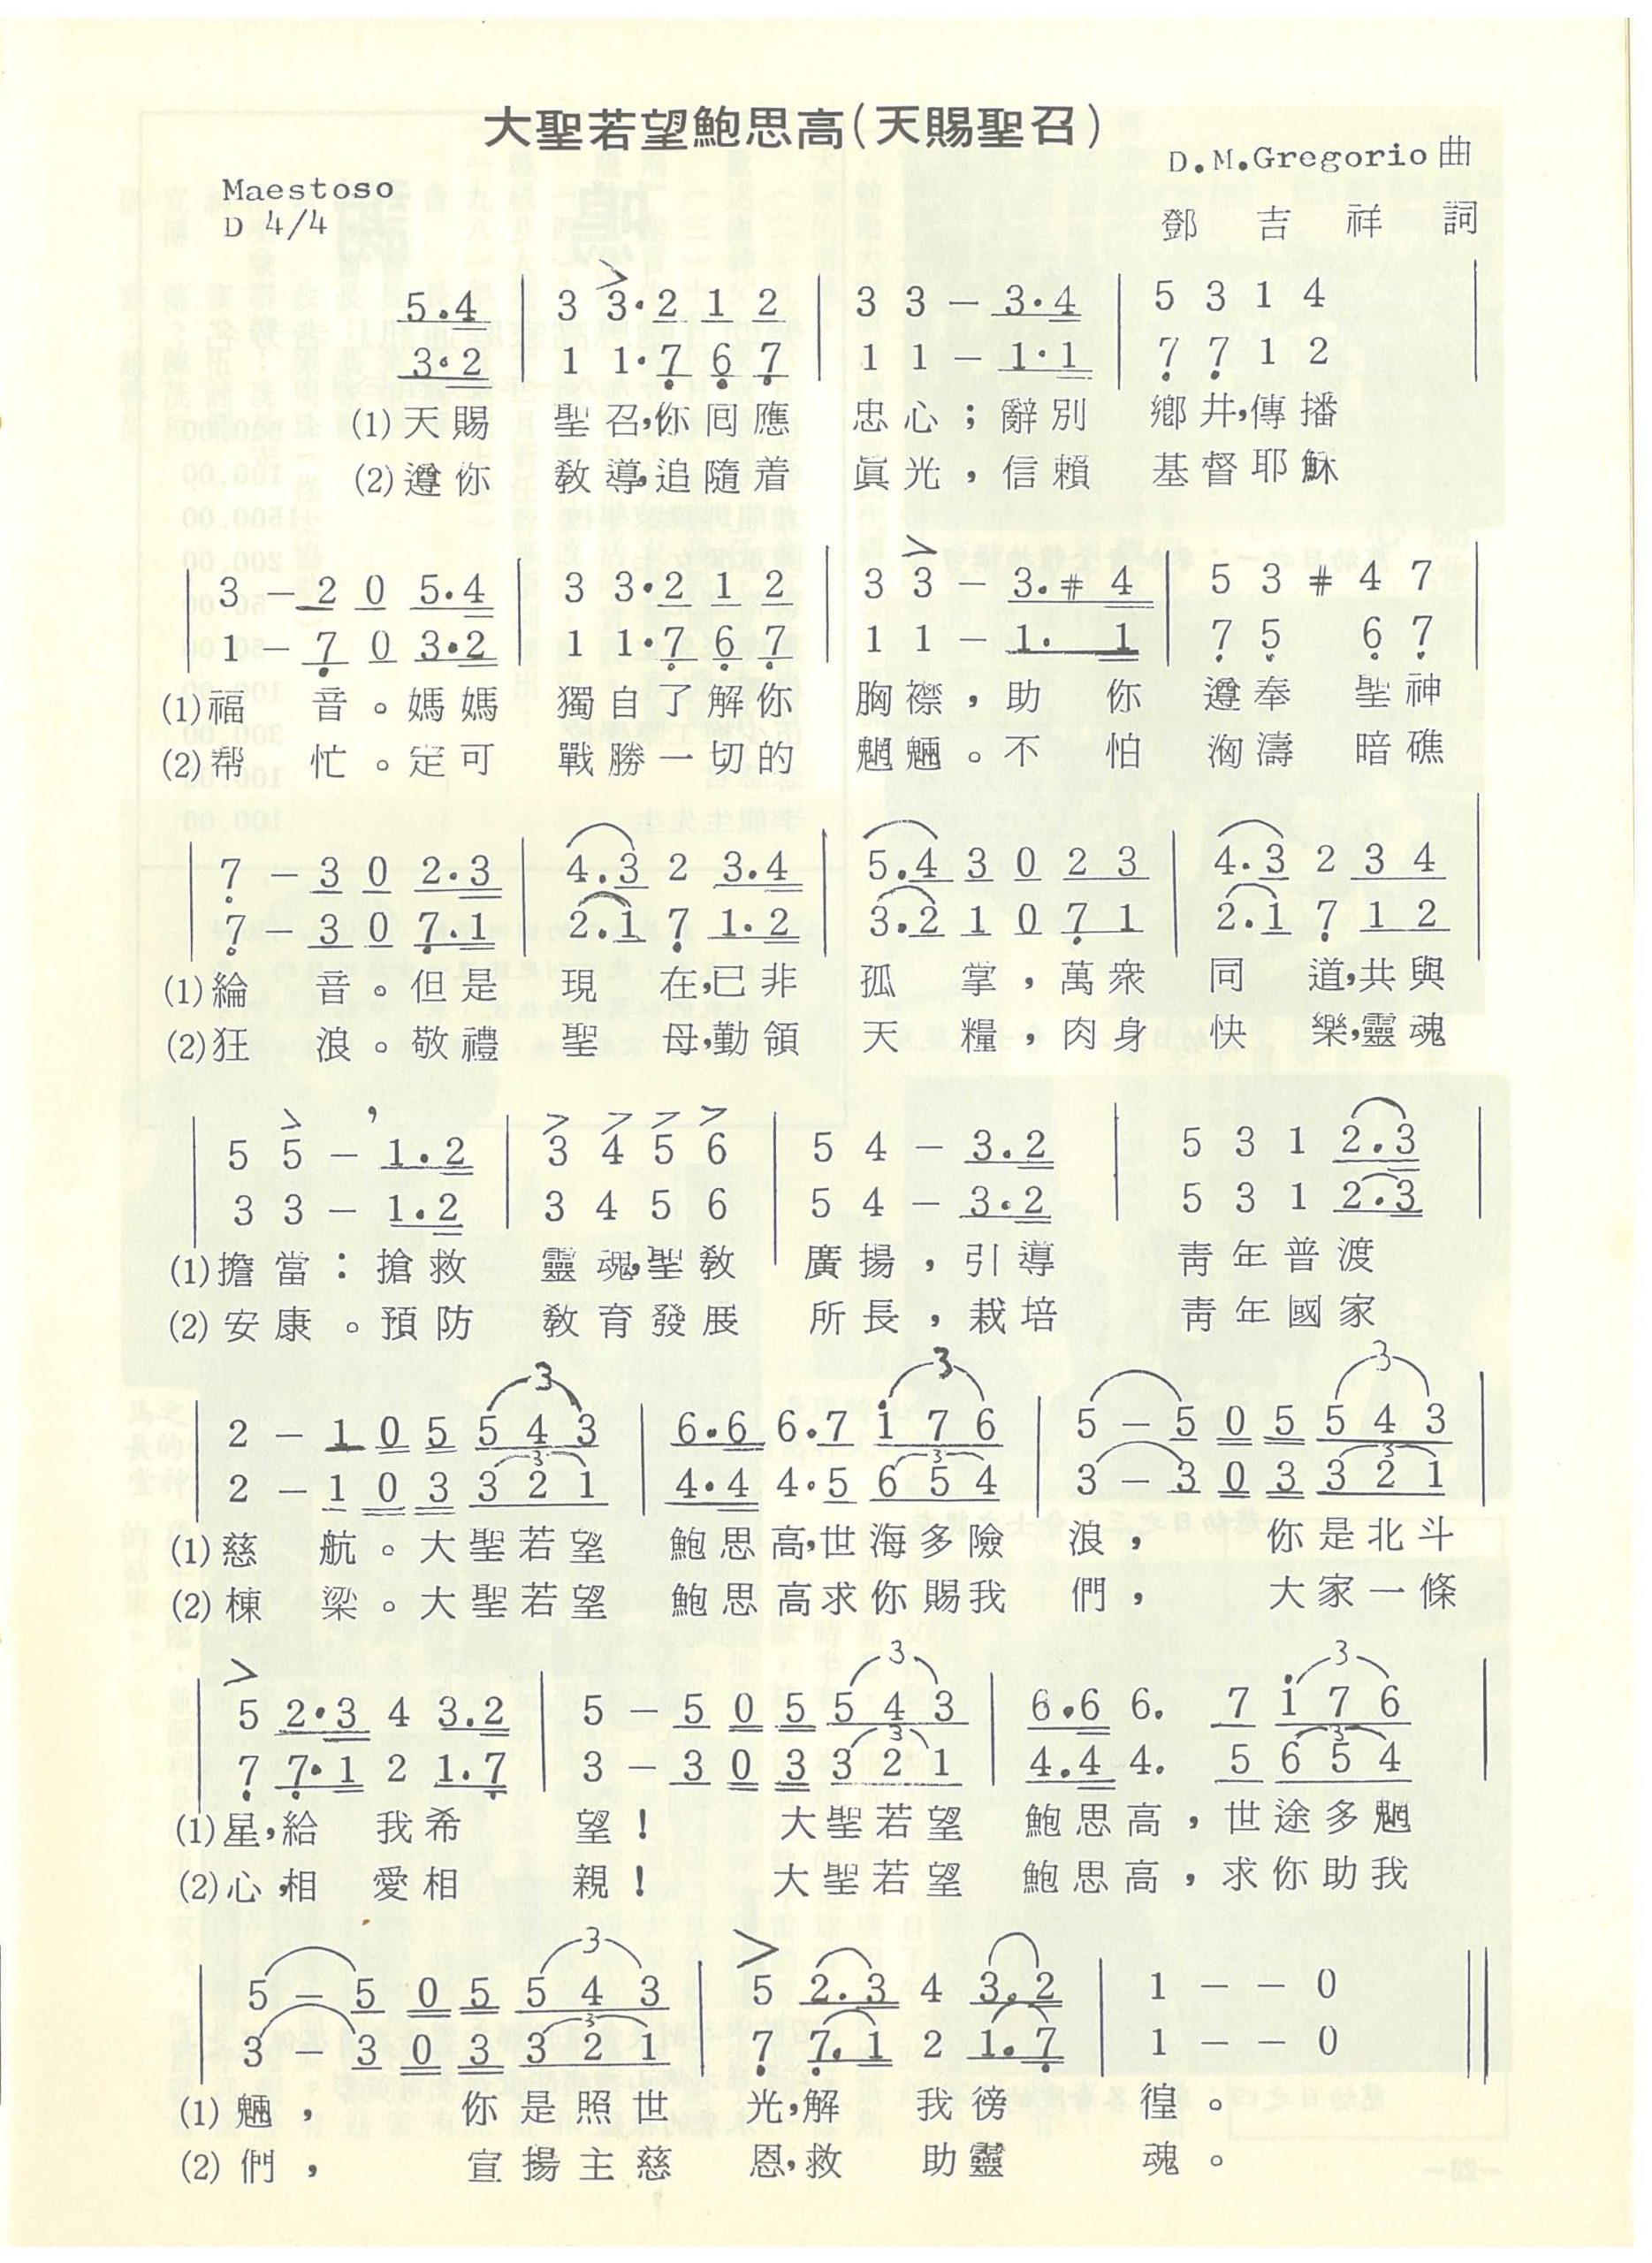 大聖若望鮑思高(天賜聖召)
D.M.Gregorio曲
Maestoso
D 4/4
鄧吉祥詞
5.4 | 3 3.2 1 2 | 3 3 - 3.4 | 5 3 1 4 |
3.2 | 1 1.7 6 7 | 1 1 - 1.1 | 7 7 1 2 |
(1)天賜 聖召,你回應 忠心;辭別 鄉井,傳播
(2)遵你 教導,追隨着 眞光,信賴 基督耶穌
| 3 - 2 0 5.4 | 3 3.2 1 2 | 3 3 - 3.# 4 | 5 3 # 4 7 |
| 1 - 7 0 3.2 | 1 1.7 6 7 | 1 1 - 1. 1 | 7 5 6 7 |
(1)福 音。媽媽 獨自了解你 胸襟,助 你 遵奉 聖神
(2)帮 忙。定可 戰勝一切的 魍魎。不 怕 洶濤 暗礁
| 7 - 3 0 2.3 | 4.3 2 3.4 | 5.4 3 0 2 3 | 4.3 2 3 4 |
| 7 - 3 0 7.1 | 2.1 7 1.2 | 3.2 1 0 7 1 | 2.1 7 1 2 |
(1)綸 音。但是 現 在,已非 孤 掌,萬衆 同 道,共與
(2)狂 浪。敬禮 聖 母,勤領 天 糧,肉身 快 樂,靈魂
| 5 5 - , 1.2 | 3 4 5 6 | 5 4 - 3.2 | 5 3 1 2.3 |
| 3 3 - 1.2 | 3 4 5 6 | 5 4 - 3.2 | 5 3 1 2.3 |
(1)擔當:搶救 靈魂,聖敎 廣揚,引導 靑年普渡
(2)安康。預防 敎育發展 所長,栽培 靑年國家
| 2 - 1 0 5 5 4 3 | 6.6 6.7 i 7 6 | 5 - 5 0 5 5 4 3 |
| 2 - 1 0 3 3 2 1 | 4.4 4.5 6 5 4 | 3 - 3 0 3 3 2 1 |
(1)慈 航。大聖若望 鮑思高,世海多險 浪, 你是北斗
(2)棟 梁。大聖若望 鮑思高求你賜我 們, 大家一條
| 5 2.3 4 3.2 | 5 - 5 0 5 5 4 3 | 6.6 6. 7 i 7 6 |
| 7 7.1 2 1.7 | 3 - 3 0 3 3 2 1 | 4.4 4. 5 6 5 4 |
(1)星,給 我希 望! 大聖若望 鮑思高,世途多魍
(2)心,相 愛相 親! 大聖若望 鮑思高,求你助我
| 5 - 5 0 5 5 4 3 | 5 2.3 4 3.2 | 1 - - 0 ||
| 3 - 3 0 3 3 2 1 | 7 7.1 2 1.7 | 1 - - 0 ||
(1)魎, 你是照世 光,解 我徬 徨。
(2)們, 宣揚主慈 恩,救 助靈 魂。